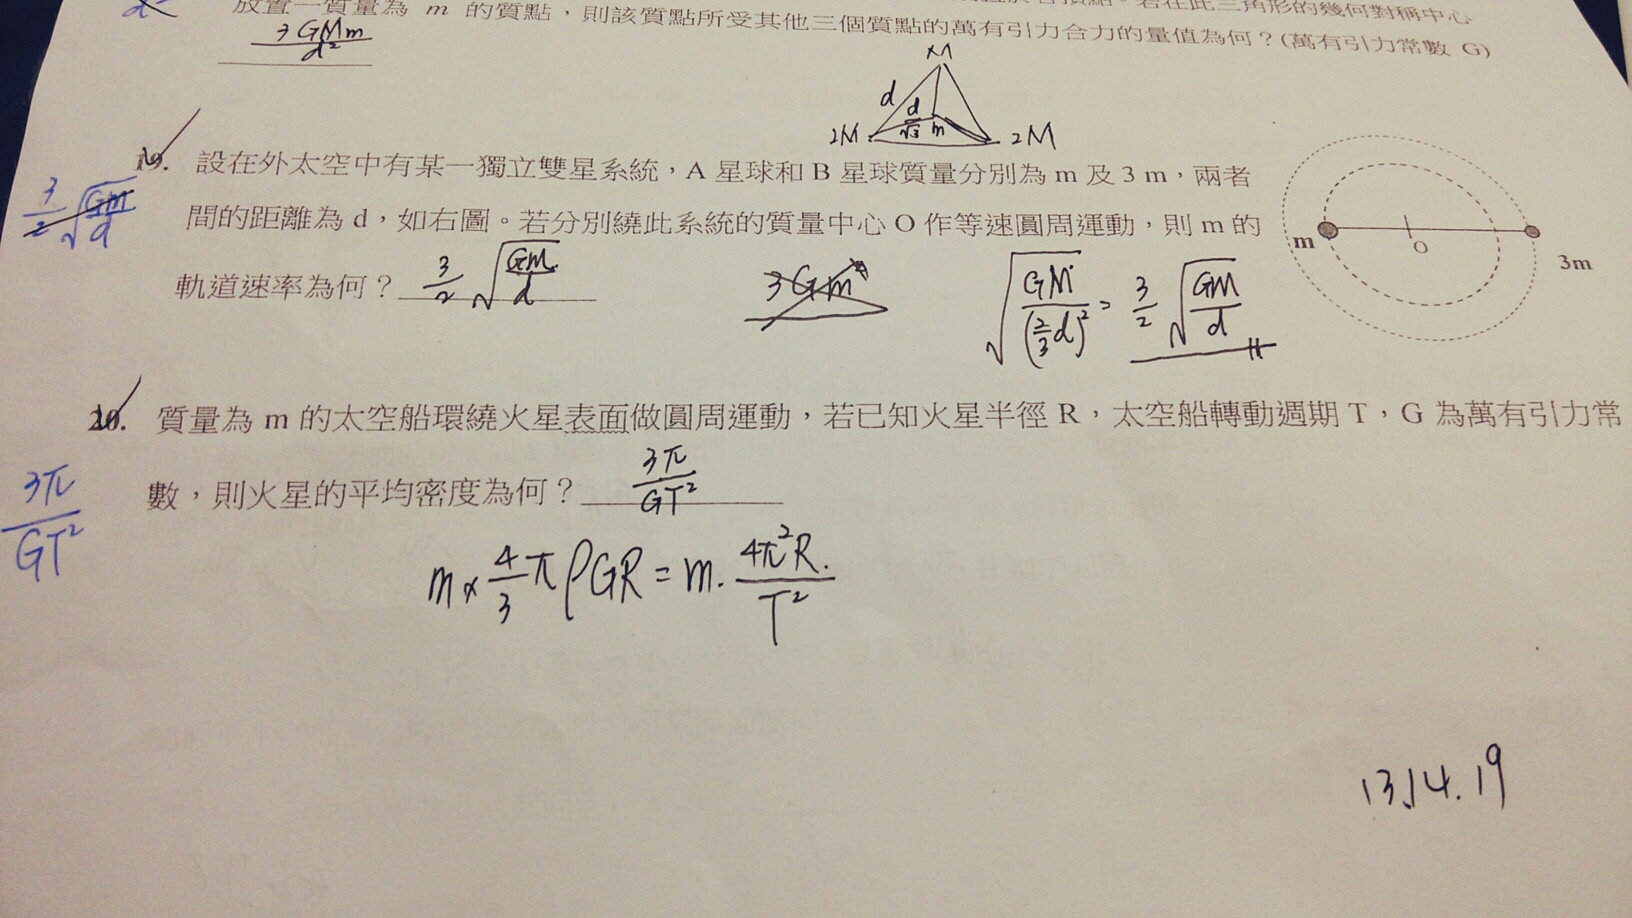 放置一質量為 m 的質點，則該質點所受其他三個質點的萬有引力合力的量值為何？(萬有引力常數 G)
3GMm
d²
M
d
d
√3
m
2M
2M
19. 設在外太空中有某一獨立雙星系統，A 星球和 B 星球質量分別為 m 及 3 m，兩者
間的距離為 d，如右圖。若分別繞此系統的質量中心 O 作等速圓周運動，則 m 的
軌道速率為何？ 3/2 √(GM/d)
3/2 √(Gm/d)
3Gm
√(GM/(2/3 d)²) = 3/2 √(GM/d)
m
O
3m
20. 質量為 m 的太空船環繞火星表面做圓周運動，若已知火星半徑 R，太空船轉動週期 T，G 為萬有引力常
數，則火星的平均密度為何？ 3π/GT²
3π/GT²
m × 4/3 π ρGR = m · 4π²R/T²
13.14.19